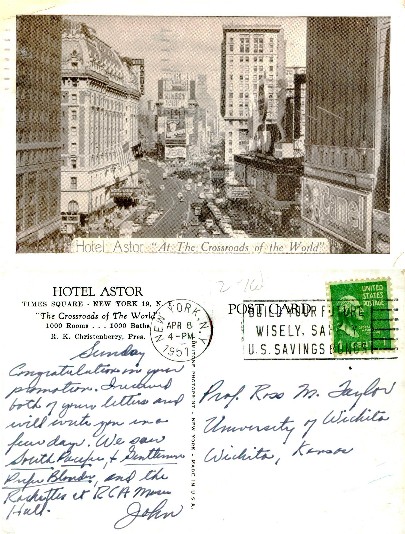 Hotel Astor "At The Crossroads of the World"
HOTEL ASTOR
TIMES SQUARE - NEW YORK 19, N.
"The Crossroads of the World"
1000 Rooms . . . 1000 Baths
R. K. Christenberry, Pres.
NEW YORK, N.Y.
APR 8
4-PM
1951
POST CARD
BUILD YOUR FUTURE
WISELY, SA
U.S. SAVINGS BONDS
UNITED STATES POSTAGE
Sunday
Congratulations on your
promotion. I received
both of your letters and
will write you in a
few days. We saw
South Pacific, & Gentlemen
Prefer Blondes, and the
Rockettes at RCA Music
Hall.
John
Prof. Ross M. Taylor
University of Wichita
Wichita, Kansas